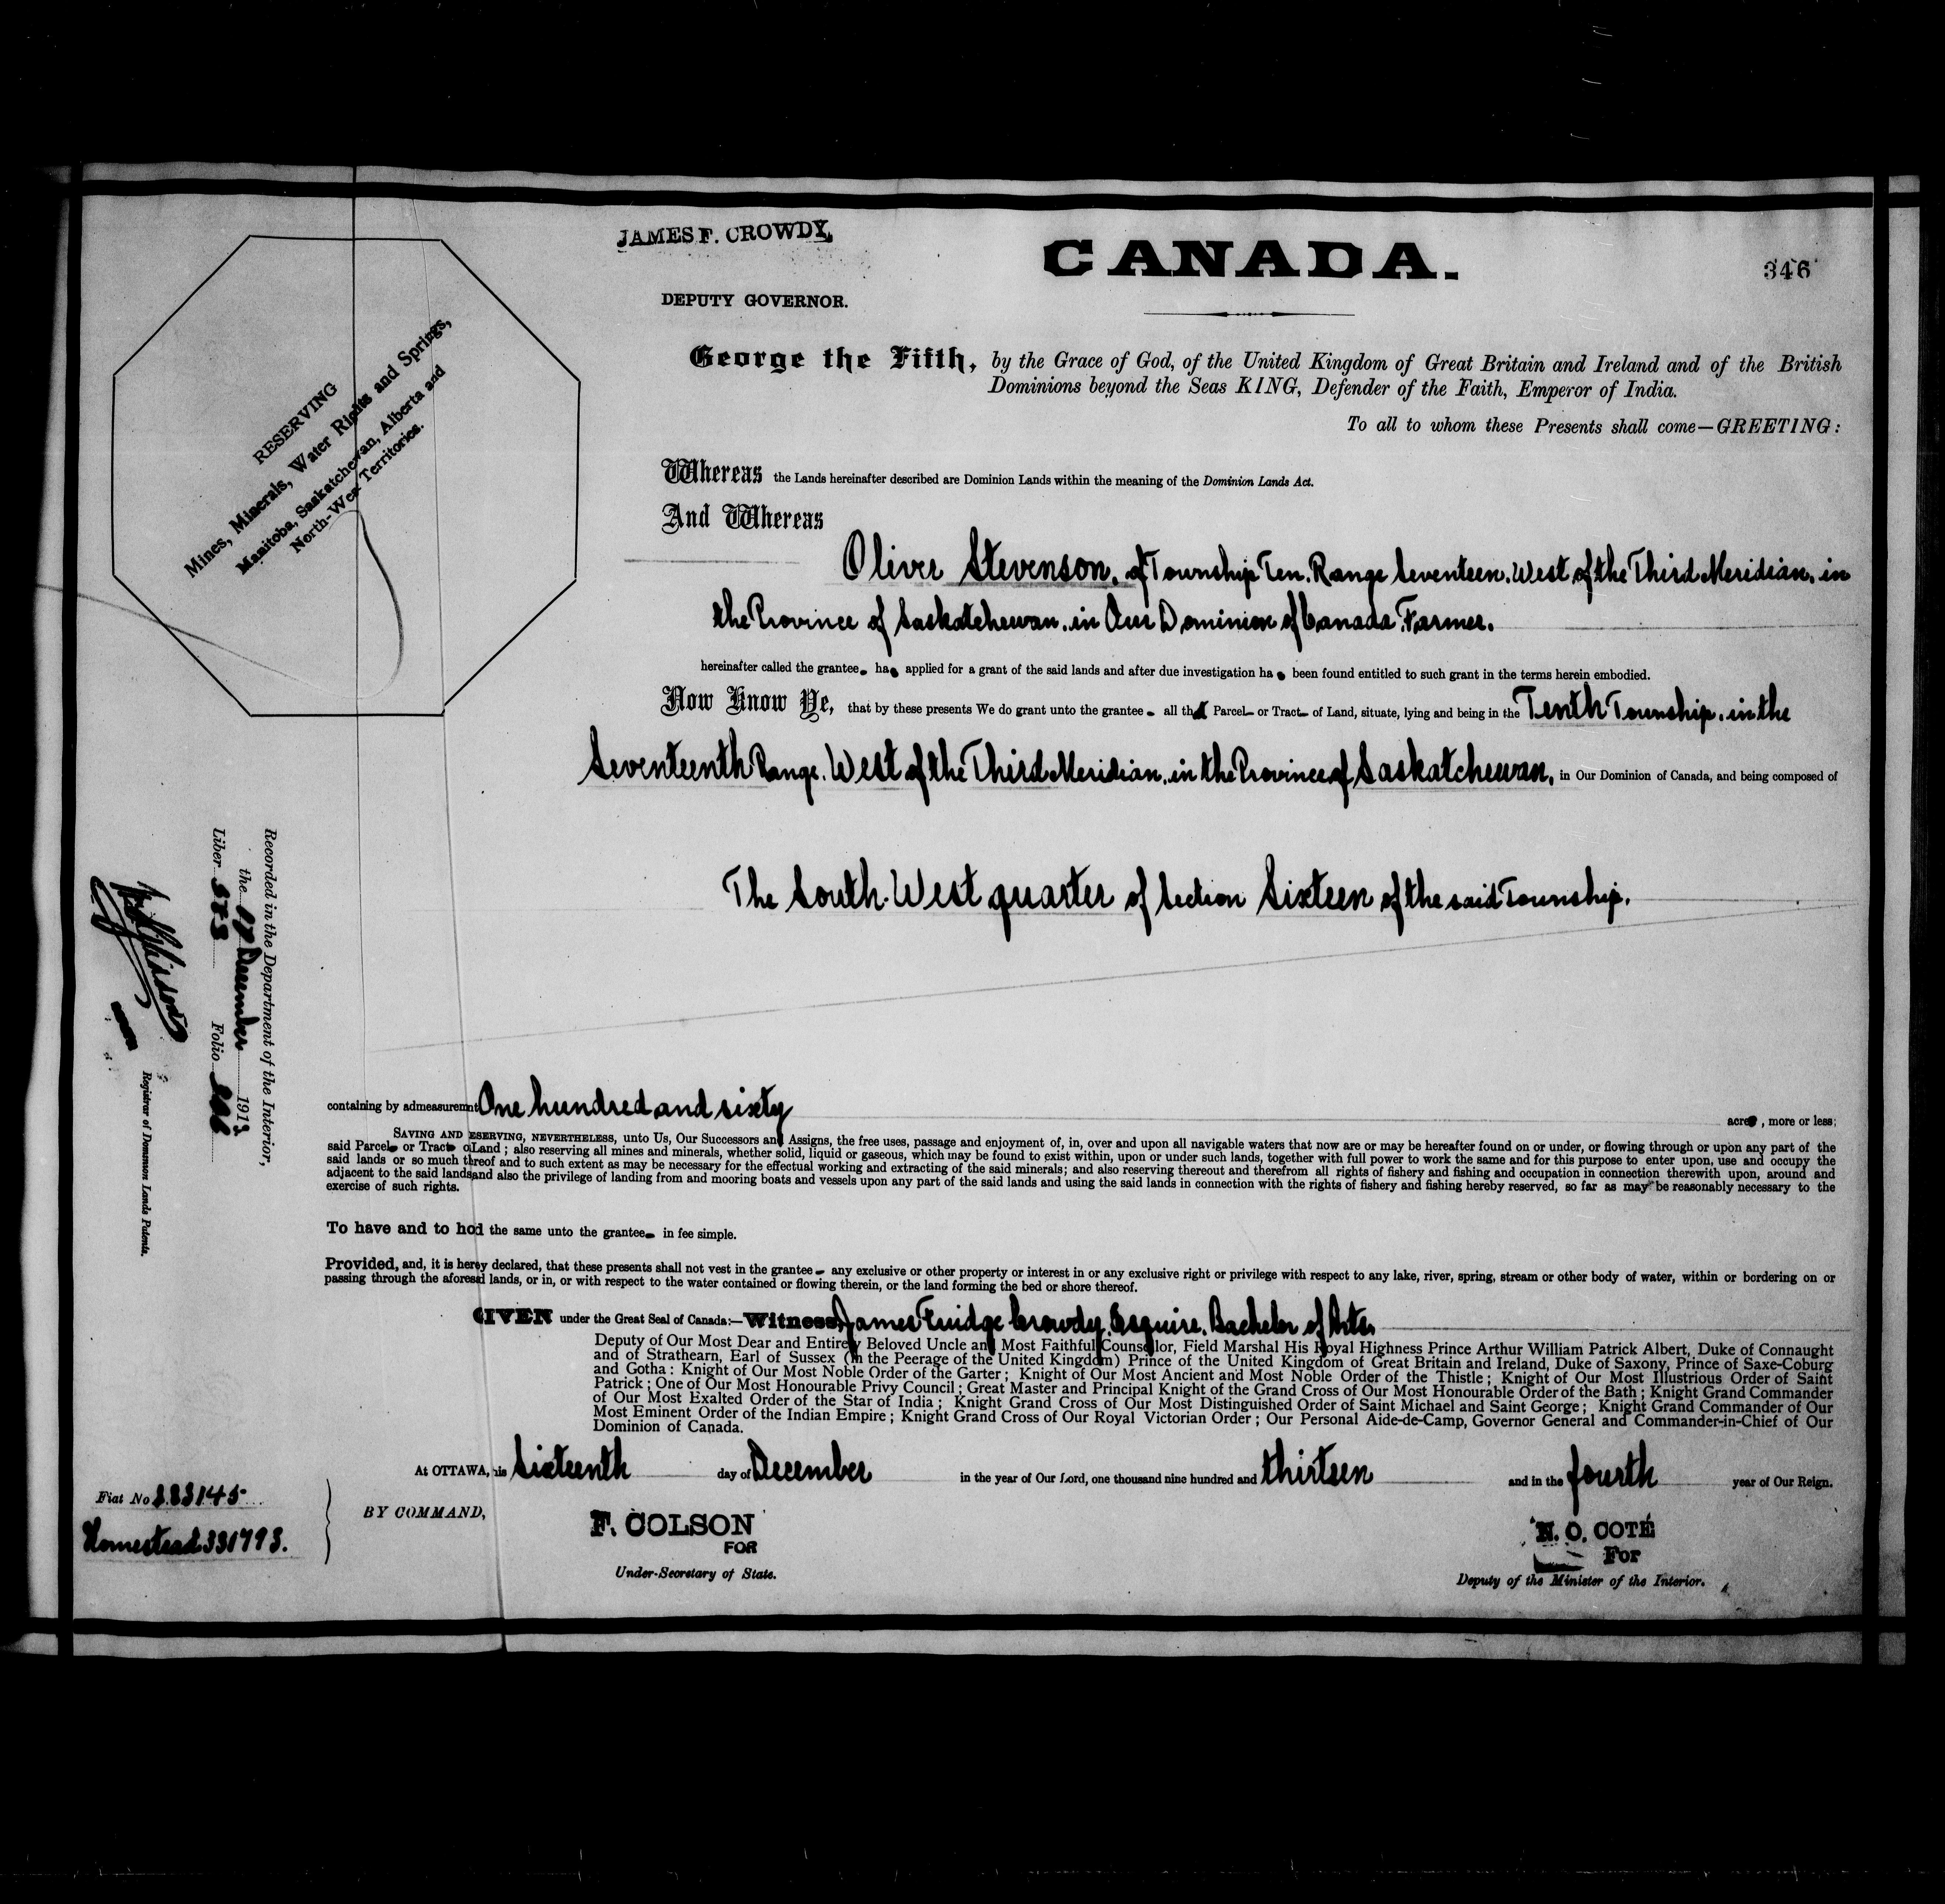 JAMES F. CROWDY,
DEPUTY GOVERNOR.
CANADA.
346
RESERVING
Mines, Minerals, Water Rights and Springs,
Manitoba, Saskatchewan, Alberta and
North-West Territories.
George the Fifth, by the Grace of God, of the United Kingdom of Great Britain and Ireland and of the British
Dominions beyond the Seas KING, Defender of the Faith, Emperor of India.
To all to whom these Presents shall come—GREETING:
Whereas the Lands hereinafter described are Dominion Lands within the meaning of the Dominion Lands Act.
And Whereas
Oliver Stevenson, of Township Ten, Range Seventeen, West of the Third Meridian, in
the Province of Saskatchewan, in Our Dominion of Canada, Farmer.
hereinafter called the grantee ha applied for a grant of the said lands and after due investigation ha been found entitled to such grant in the terms herein embodied.
Now Know Ye, that by these presents We do grant unto the grantee all that Parcel or Tract of Land, situate, lying and being in the Tenth Township, in the
Seventeenth Range, West of the Third Meridian, in the Province of Saskatchewan, in Our Dominion of Canada, and being composed of
The South West quarter of Section Sixteen of the said Township.
Recorded in the Department of the Interior,
the December 1913
Liber Folio
Registrar of Dominion Lands Patents.
containing by admeasuremnt One hundred and sixty acres, more or less;
SAVING AND ESERVING, NEVERTHELESS, unto Us, Our Successors and Assigns, the free uses, passage and enjoyment of, in, over and upon all navigable waters that now are or may be hereafter found on or under, or flowing through or upon any part of the
said Parcel or Tract o Land; also reserving all mines and minerals, whether solid, liquid or gaseous, which may be found to exist within, upon or under such lands, together with full power to work the same and for this purpose to enter upon, use and occupy the
said lands or so much threof and to such extent as may be necessary for the effectual working and extracting of the said minerals; and also reserving thereout and therefrom all rights of fishery and fishing and occupation in connection therewith upon, around and
adjacent to the said lands and also the privilege of landing from and mooring boats and vessels upon any part of the said lands and using the said lands in connection with the rights of fishery and fishing hereby reserved, so far as may be reasonably necessary to the
exercise of such rights.
To have and to hod the same unto the grantee in fee simple.
Provided, and, it is herey declared, that these presents shall not vest in the grantee any exclusive or other property or interest in or any exclusive right or privilege with respect to any lake, river, spring, stream or other body of water, within or bordering on or
passing through the aforesad lands, or in, or with respect to the water contained or flowing therein, or the land forming the bed or shore thereof.
GIVEN under the Great Seal of Canada:—Witness, James Fuidge Crowdy, Esquire, Bachelor of Arts
Deputy of Our Most Dear and Entirely Beloved Uncle and Most Faithful Counsellor, Field Marshal His Royal Highness Prince Arthur William Patrick Albert, Duke of Connaught
and of Strathearn, Earl of Sussex (in the Peerage of the United Kingdom) Prince of the United Kingdom of Great Britain and Ireland, Duke of Saxony, Prince of Saxe-Coburg
and Gotha: Knight of Our Most Noble Order of the Garter; Knight of Our Most Ancient and Most Noble Order of the Thistle; Knight of Our Most Illustrious Order of Saint
Patrick; One of Our Most Honourable Privy Council; Great Master and Principal Knight of the Grand Cross of Our Most Honourable Order of the Bath; Knight Grand Commander
of Our Most Exalted Order of the Star of India; Knight Grand Cross of Our Most Distinguished Order of Saint Michael and Saint George; Knight Grand Commander of Our
Most Eminent Order of the Indian Empire; Knight Grand Cross of Our Royal Victorian Order; Our Personal Aide-de-Camp, Governor General and Commander-in-Chief of Our
Dominion of Canada.
At OTTAWA, his Sixteenth day of December in the year of Our Lord, one thousand nine hundred and thirteen and in the fourth year of Our Reign.
Fiat No 283145
Homestead 331793.
BY COMMAND,
F. COLSON
FOR
Under-Secretary of State.
N. O. COTÉ
For
Deputy of the Minister of the Interior.